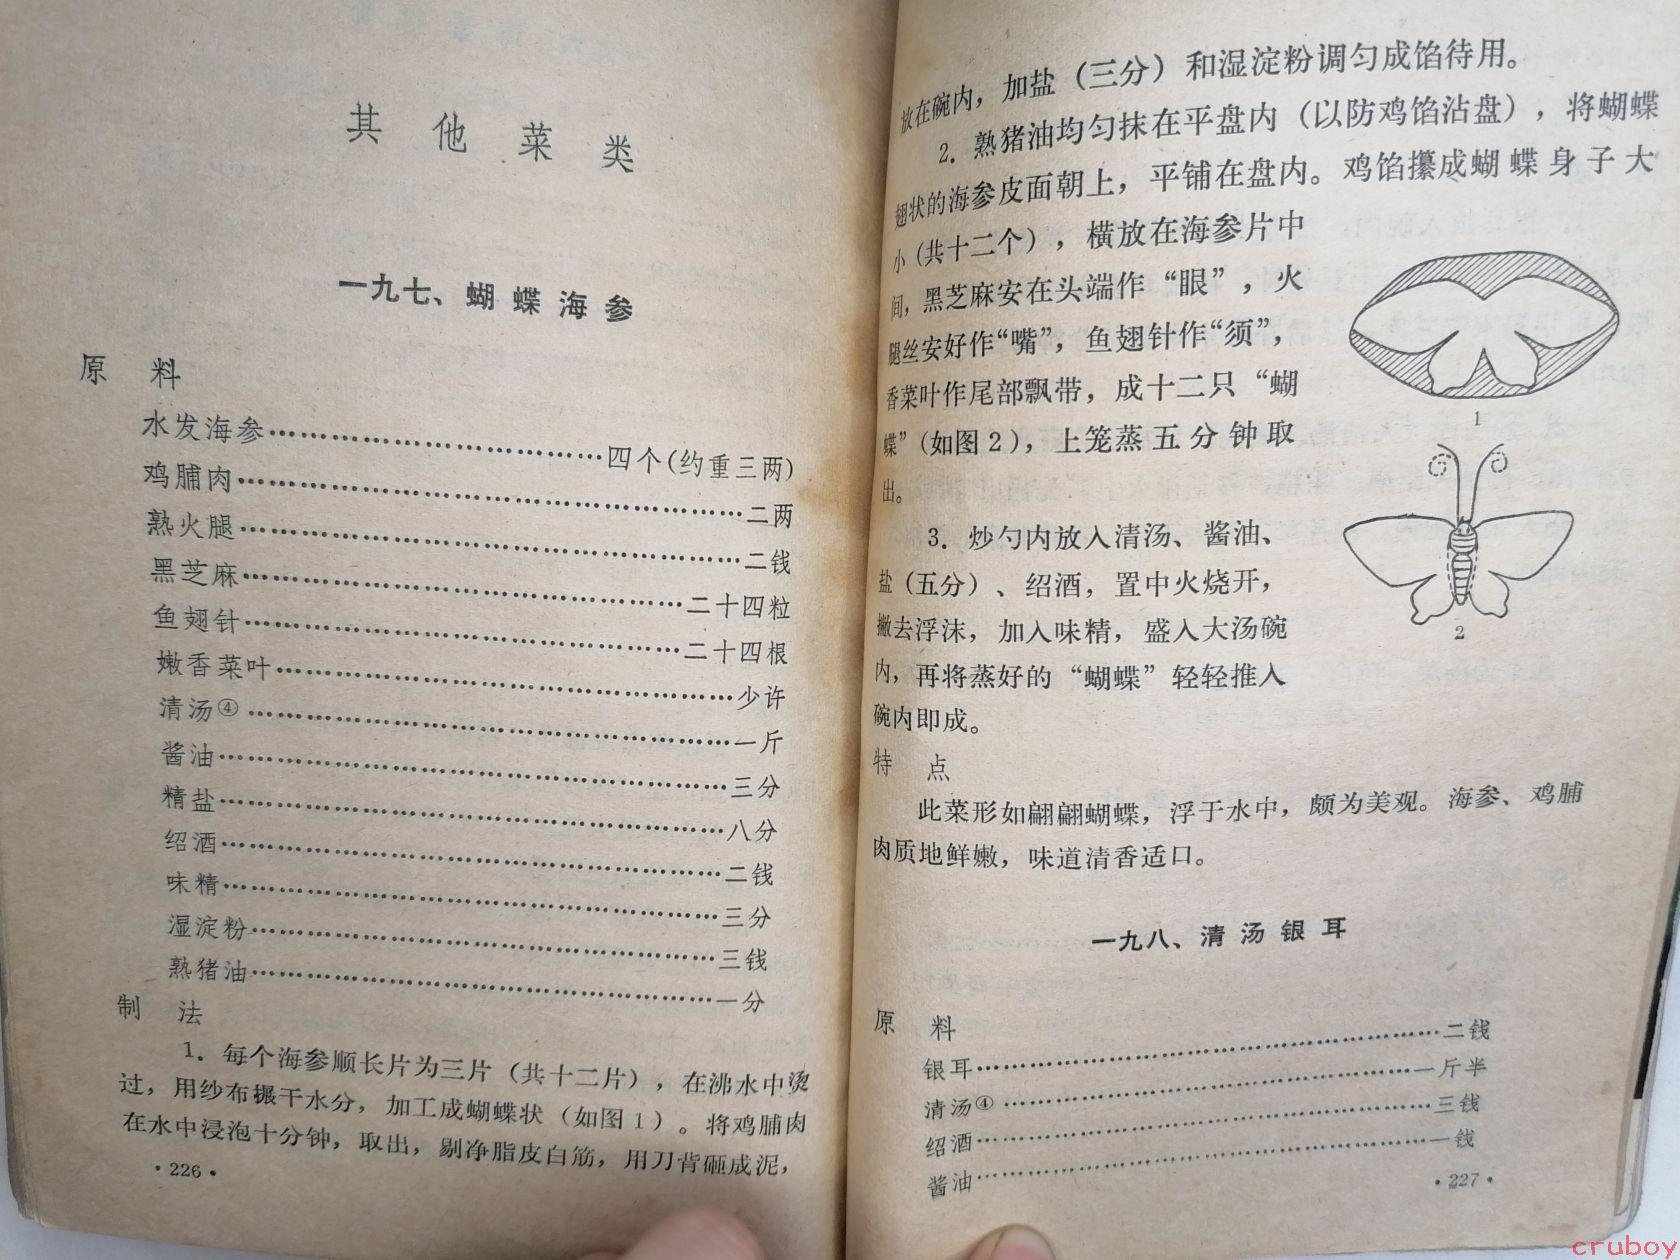 其他菜类
一九七、蝴蝶海参
原料
水发海参……………………………四个(约重三两)
鸡脯肉……………………………………………二两
熟火腿……………………………………………二钱
黑芝麻………………………………………二十四粒
鱼翅针………………………………………二十四根
嫩香菜叶…………………………………………少许
清汤④……………………………………………一斤
酱油………………………………………………三分
精盐………………………………………………八分
绍酒………………………………………………二钱
味精………………………………………………三分
湿淀粉……………………………………………三钱
熟猪油……………………………………………一分
制法
1．每个海参顺长片为三片（共十二片），在沸水中烫
过，用纱布搌干水分，加工成蝴蝶状（如图1）。将鸡脯肉
在水中浸泡十分钟，取出，剔净脂皮白筋，用刀背砸成泥，
·226·
放在碗内，加盐（三分）和湿淀粉调匀成馅待用。
2．熟猪油均匀抹在平盘内（以防鸡馅沾盘），将蝴蝶
翅状的海参皮面朝上，平铺在盘内。鸡馅攥成蝴蝶身子大
小（共十二个），横放在海参片中
间，黑芝麻安在头端作“眼”，火
腿丝安好作“嘴”，鱼翅针作“须”，
香菜叶作尾部飘带，成十二只“蝴
蝶”（如图2），上笼蒸五分钟取
出。
1
2
3．炒勺内放入清汤、酱油、
盐（五分）、绍酒，置中火烧开，
撇去浮沫，加入味精，盛入大汤碗
内，再将蒸好的“蝴蝶”轻轻推入
碗内即成。
特点
此菜形如翩翩蝴蝶，浮于水中，颇为美观。海参、鸡脯
肉质地鲜嫩，味道清香适口。
一九八、清汤银耳
原料
银耳………………………………………………二钱
清汤④……………………………………………一斤半
绍酒………………………………………………三钱
酱油………………………………………………一钱
·227·
cruboy